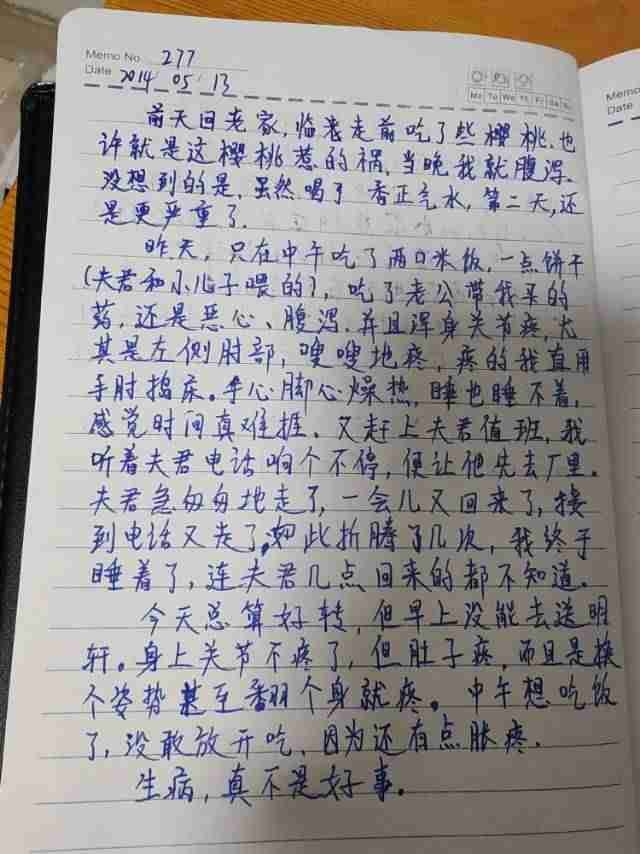 Memo No. 277
Date 2014 05 13
Mo Tu We Th Fr Sa Su
Memo
Date
前天回老家,临老走前吃了些樱桃,也
许就是这樱桃惹的祸,当晚我就腹泻。
没想到的是,虽然喝了香正气水,第二天,还
是更严重了。
昨天,只在中午吃了两口米饭,一点饼干
(夫君和小儿子喂的),吃了老公带我买的
药,还是恶心、腹泻,并且浑身关节疼,尤
其是左侧肘部,嗖嗖地疼,疼的我直用
手肘捣床。手心脚心燥热,睡也睡不着,
感觉时间真难捱。又赶上夫君值班,我
听着夫君电话响个不停,便让他先去厂里。
夫君急匆匆地走了,一会儿又回来了,接
到电话又走了,如此折腾了几次,我终于
睡着了,连夫君几点回来的都不知道。
今天总算好转,但早上没能去送明
轩。身上关节不疼了,但肚子疼,而且是换
个姿势甚至翻个身就疼。中午想吃饭
了,没敢放开吃,因为还有点胀疼。
生病,真不是好事。